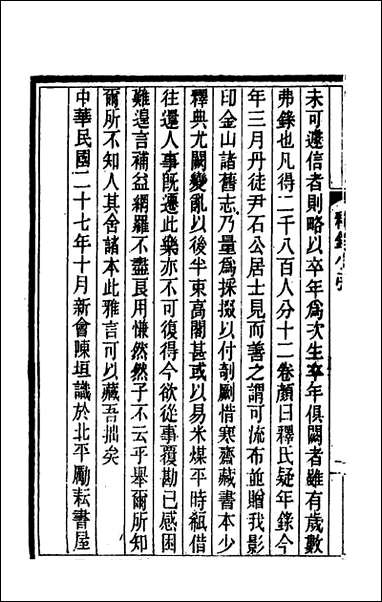 未可遽信者則略以卒年爲次生卒年俱闕者雖有歲數
弗錄也凡得二千八百人分十二卷顏曰釋氏疑年錄今
年三月丹徒尹石公居士見而善之謂可流布並贈我影
印金山諸舊志乃量爲採掇以付剞劂惜寒齋藏書本少
釋典尤闕變亂以後半束高閣甚或以易米煤平時瓻借
往還人事旣遷此樂亦不可復得今欲從事覆勘已感困
難遑言補益網羅不盡良用慊然然子不云乎舉爾所知
爾所不知人其舍諸本此雅言可以藏吾拙矣
中華民國二十七年十月新會陳垣識於北平勵耘書屋